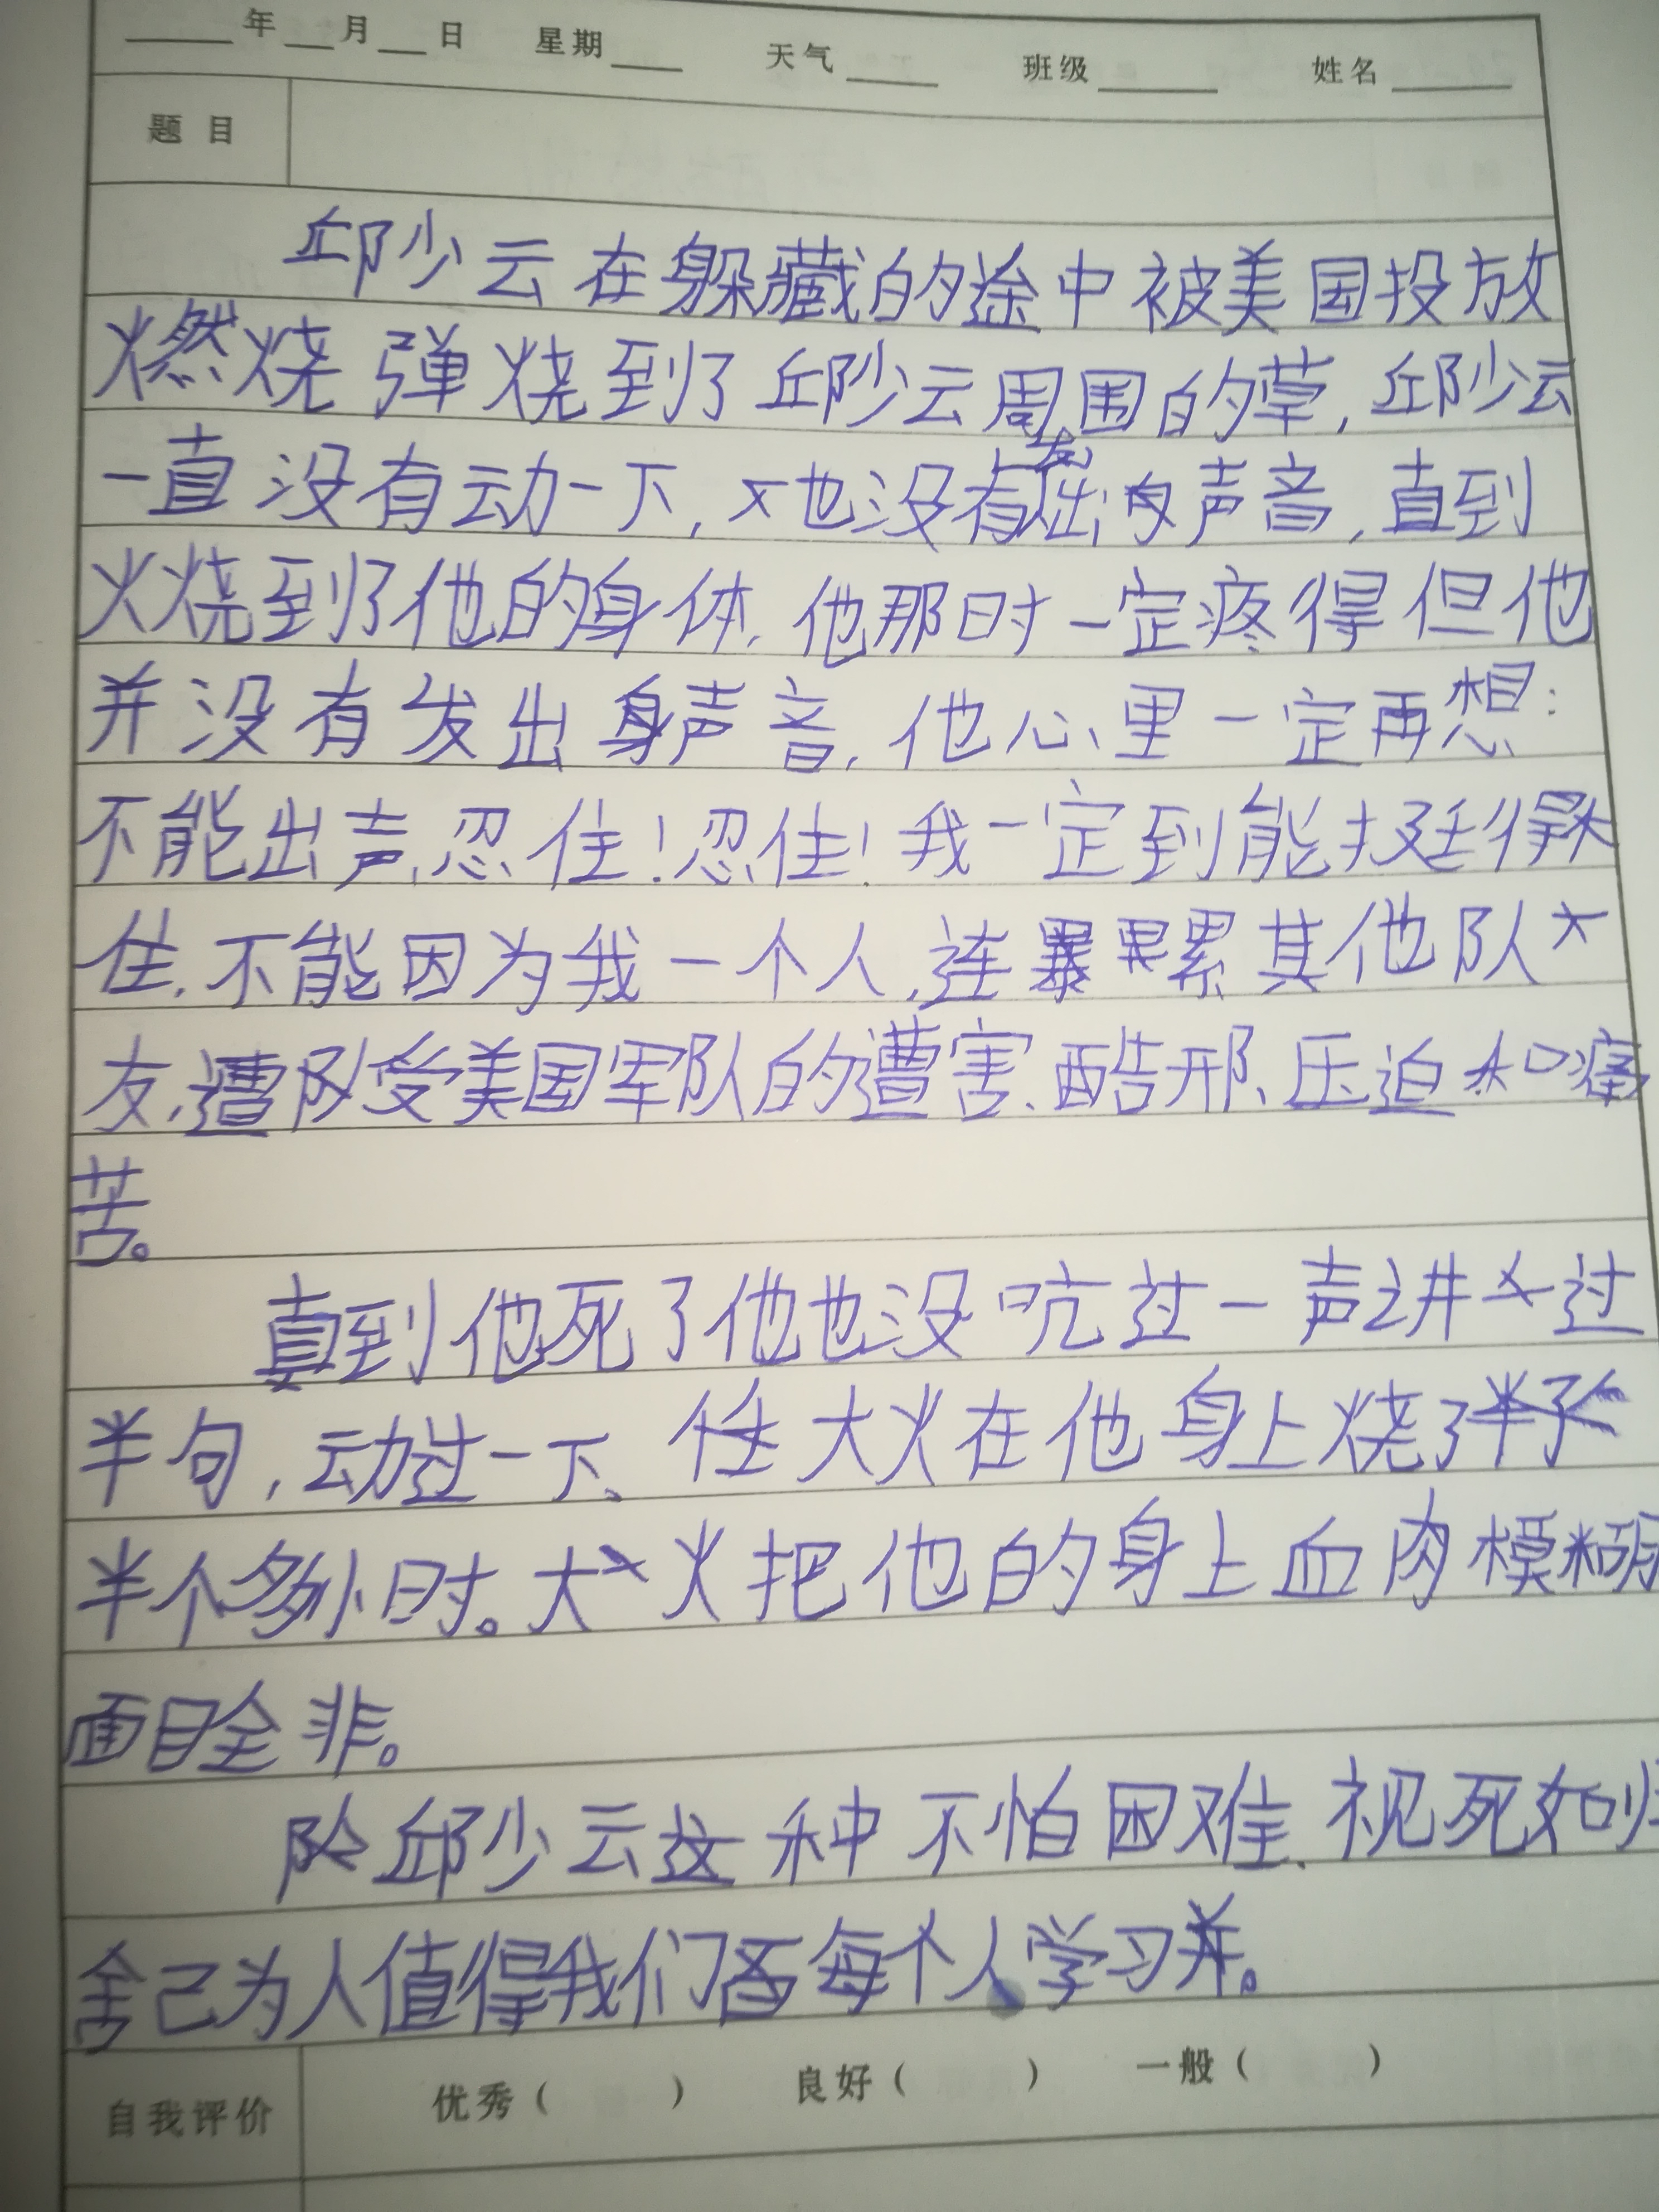 年 月 日 星期 天气 班级 姓名
题目
邱少云在躲藏的途中被美国投放
燃烧弹烧到了邱少云周围的草,邱少云
一直没有动一下,也没有发出声音,直到
火烧到了他的身体,他那时一定疼得但他
并没有发出声音,他心里一定再想:
不能出声,忍住!忍住!我一定到能挺得
住,不能因为我一个人,连累其他队
友,遭受美国军队的遭害、酷刑、压迫和痛
苦。
直到他死了他也没吭过一声讲过
半句,动过一下、任大火在他身上烧了
半个多小时。大火把他的身上血肉模糊
面目全非。
邱少云这种不怕困难、视死如归
舍己为人值得我们每个人学习。
自我评价 优秀( ) 良好( ) 一般( )